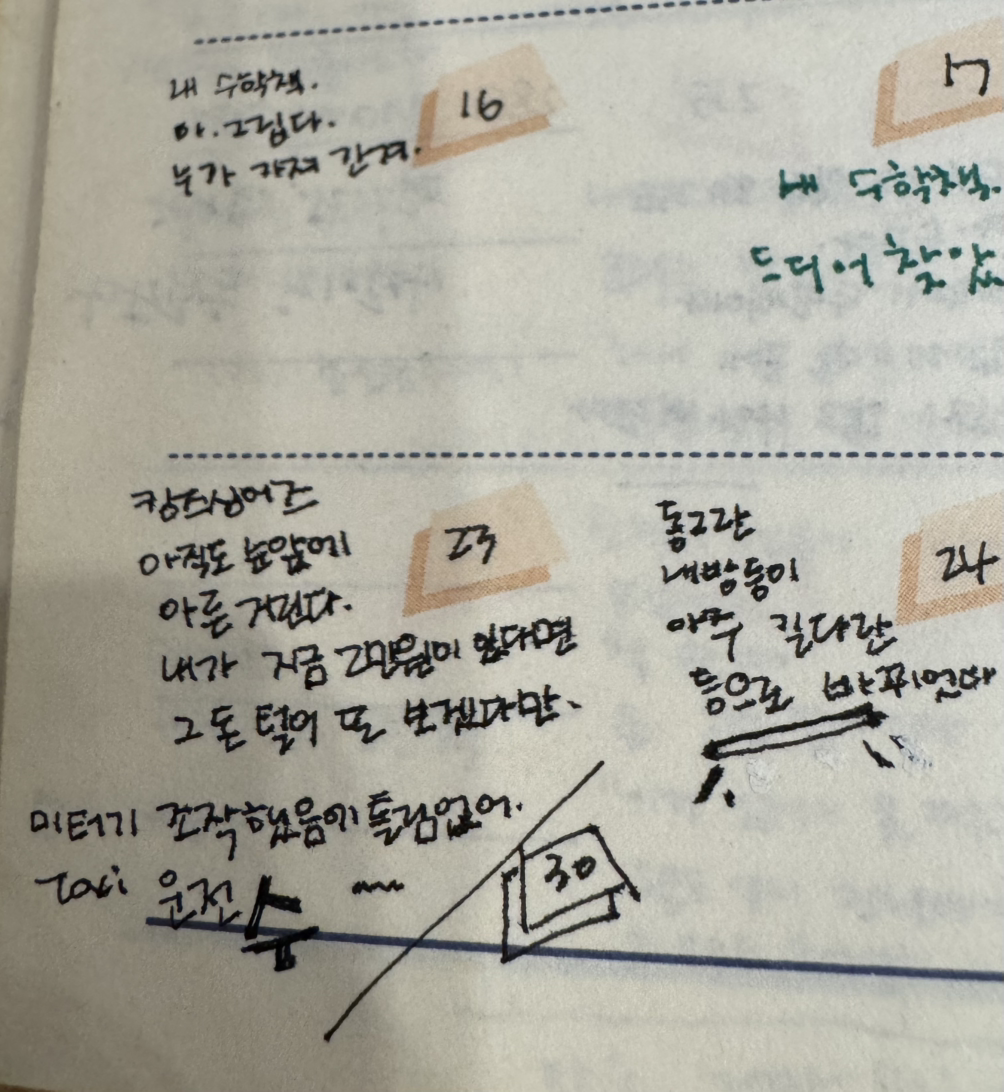 16
내 수학책.
아. 그립다.
누가 가져 간겨.
17
내 수학책.
드디어 찾았
23
캉트싱어즈
아직도 눈앞에
아른 거린다.
내가 지금 2만원이 있다면
그 돈 털어 또 보겠다만.
24
동그란
내방등이
아주 길다란
등으로 바뀌었다
30
미터기 조작했음에 틀림없어.
Taxi 운전수 ~~